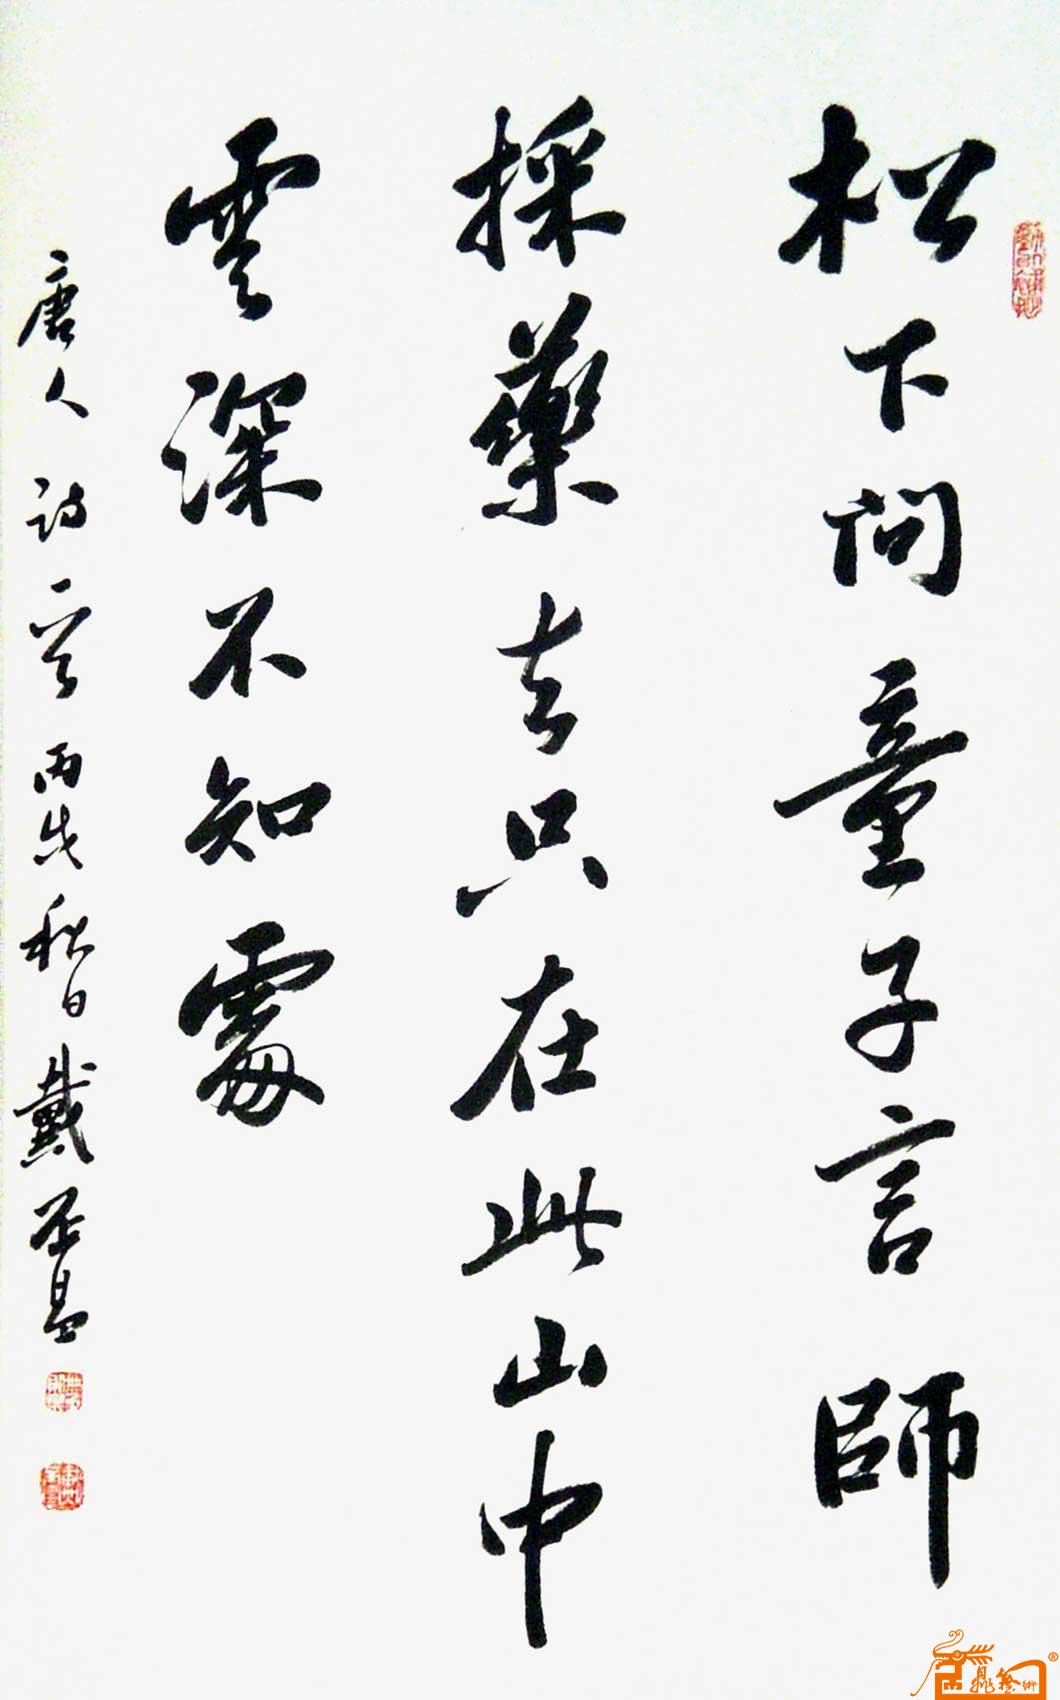 松下問童子言師
採藥去只在此山中
雲深不知處
唐人詩一首丙戌秋日戴